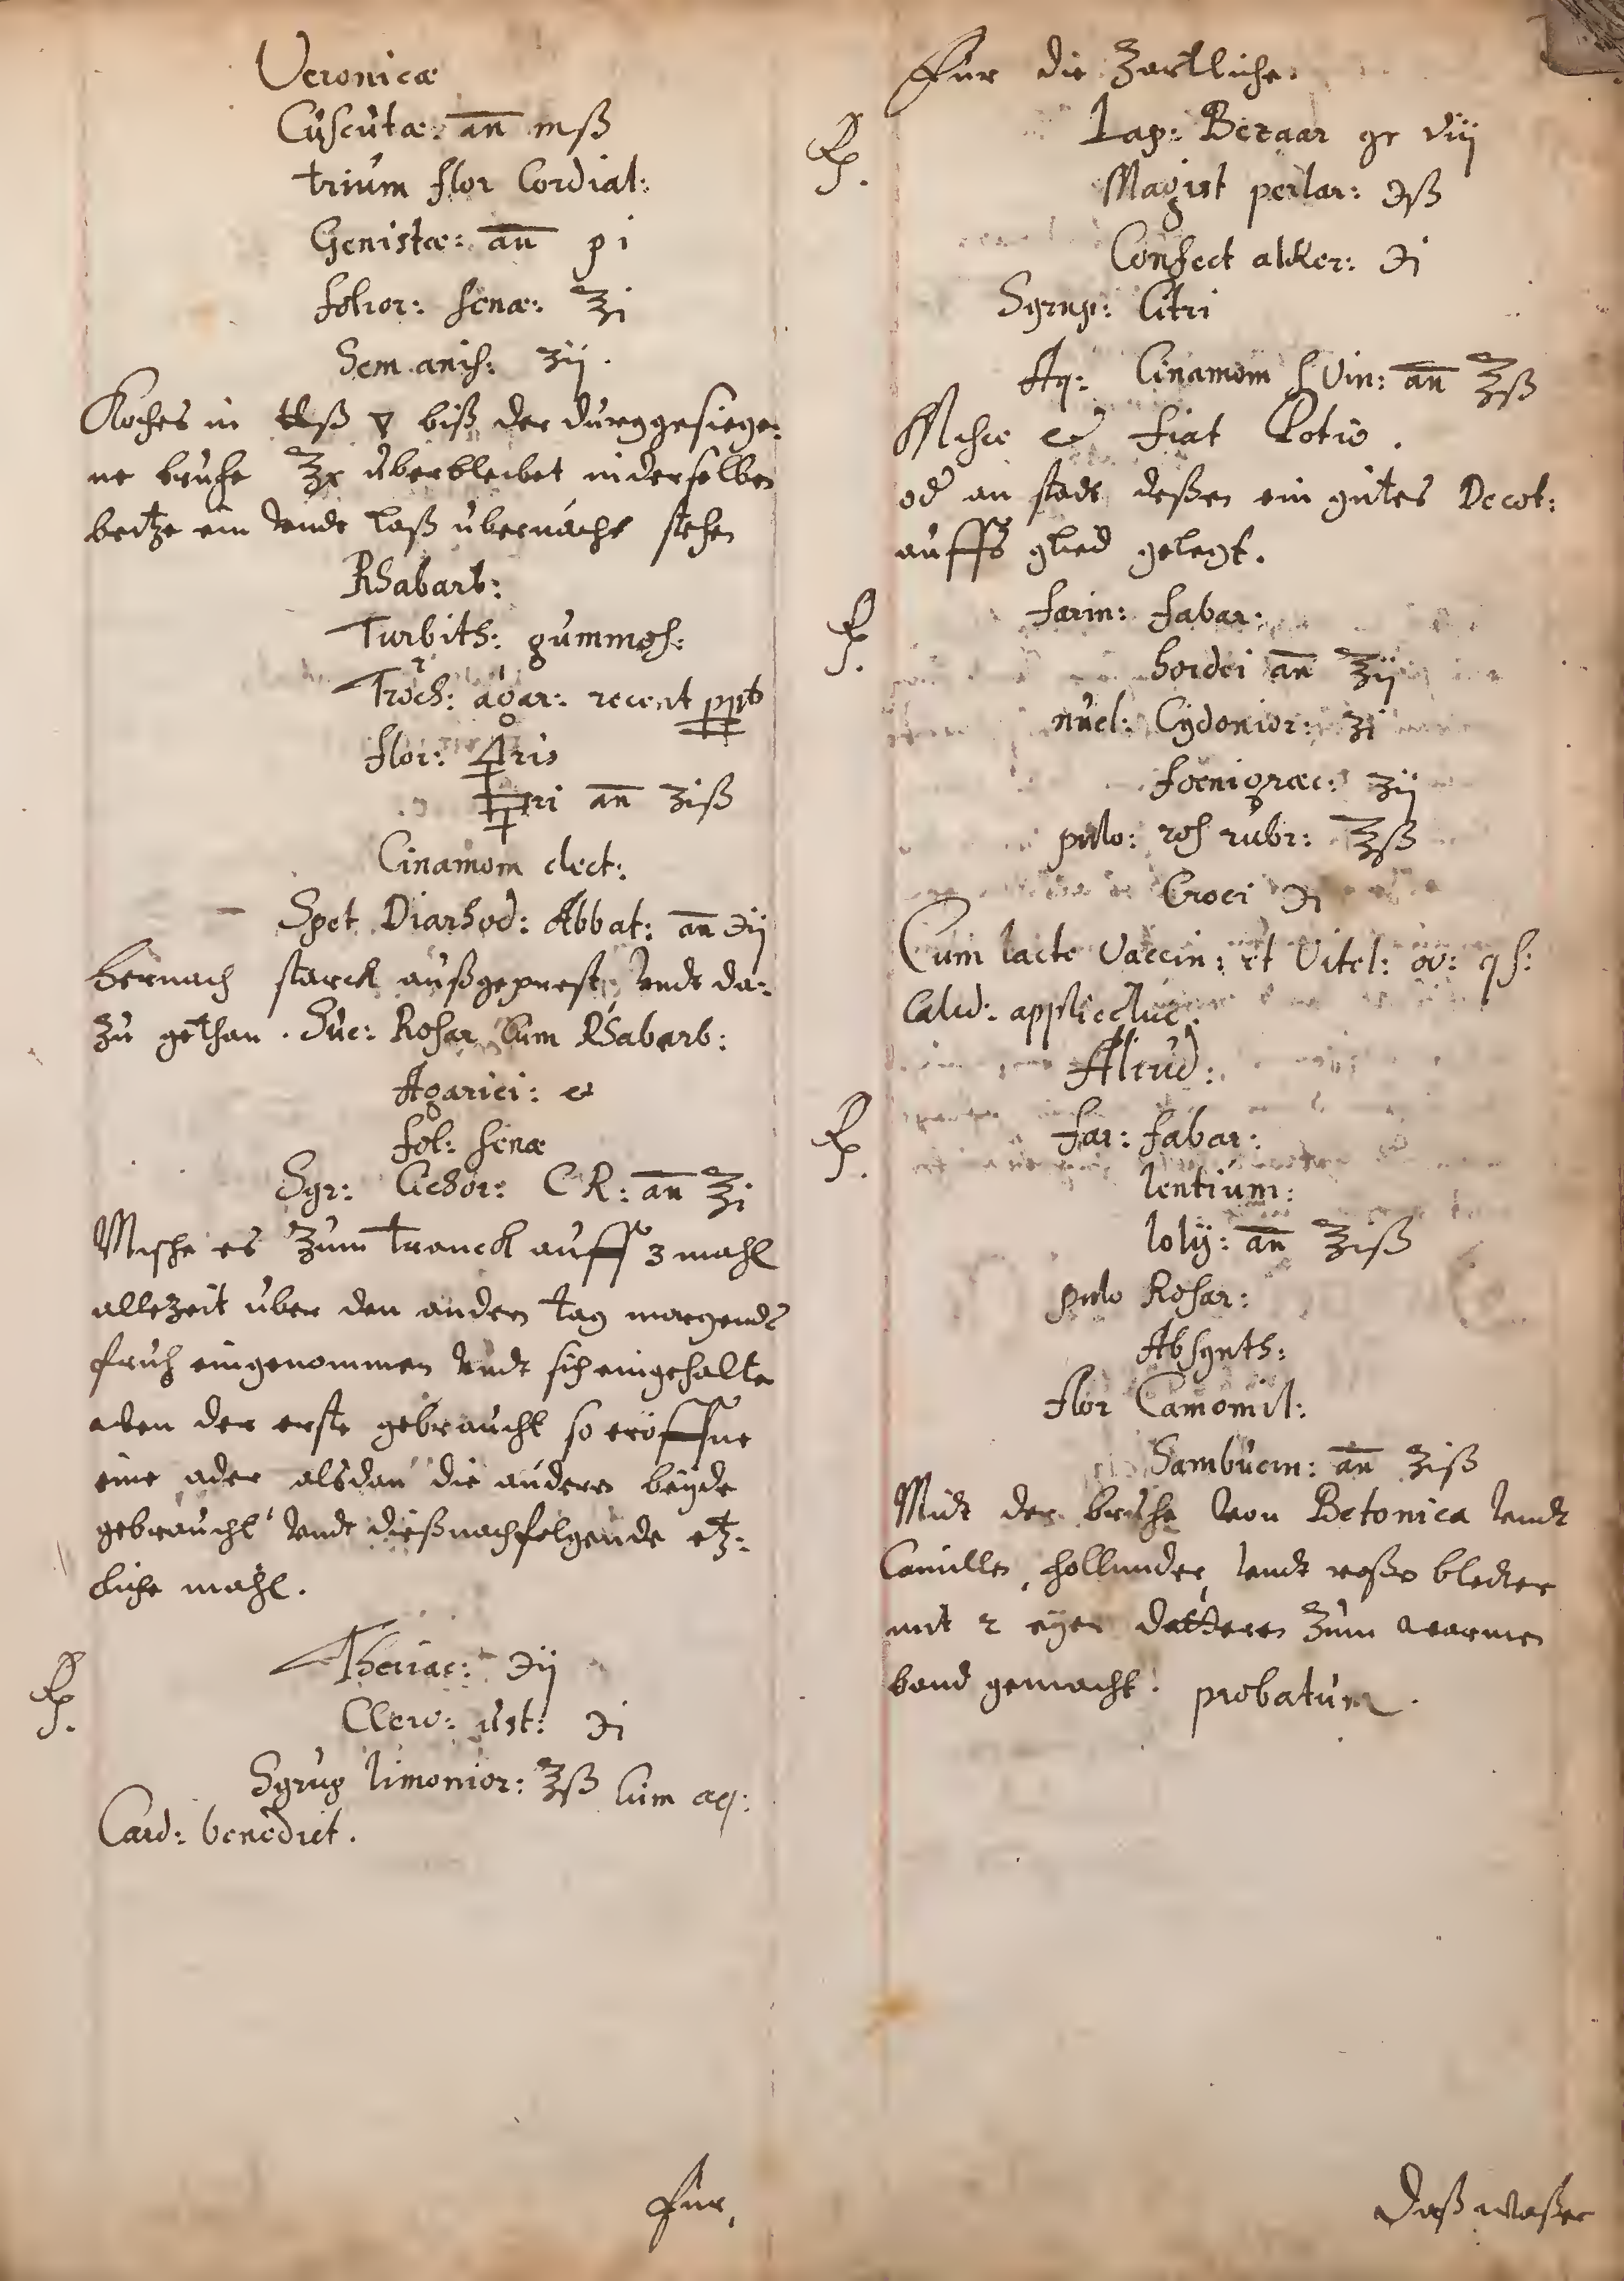 Veronicæ
Cuscutæ: an̄ mß
trium flor Cordial:
Genistæ: an̄ p i
folior: senæ: ℥i
Sem anis: ʒij.
Koches in ℔ß ▽ biß der durggesiege:
ne bruhe ℥x uberbleibet in derselben
beitze ein vndt laß ubernacht stehen
Rhabarb:
Turbith: gummos:
Troch: agar: recent ppt
flor: 🜍ris
🜿ri an̄ ʒiß
Cinamom elect:
Spet Diarhod: Abbat: an̄ ℈ij
hernach starck außgeprest, vndt da:
zu gethan. Suc: Rosar Cum Rhabarb:
Agarici: &
fol: senæ
Syr: Cichor: C R: an̄ ℥i
Mische es zum tranck auff 3 mahl
allezeit uber den andern tag morgends
fruh eingenommen vndt sich eingehalte
wen der erste gebraucht so eröffne
eine ader alsdan die andern beyde
gebraucht vndt dießnachfolgende etz:
liche mahl.
℞. Theriac: ℈ij
Cerv: ust: ℈i
Syrup limonior: ℥ß Cum aq:
Card: benedict.
Fur,
Fur die Zartliche.
℞. Lap: Bezaar gr viij
Magist perlar: ℈ß
Confect alker: ℈i
Syrup: Citri
Aq: Cinamom s Vin: an̄ ℥ß
Misce & fiat Potio.
od an stadt deßen ein gutes Decot:
auffs glied gelegt.
℞. farin: fabar:
hordei an̄ ℥ij
nucl: Cydonior: ʒi
foenigræc: ʒij
pulv: ros rubr: ℥ß
Croci ℈i
Cum lacte Vaccin: et Vitel: ov: q s:
Calid: applicetur.
Aliud:
℞. far: fabar:
lentium:
lolij: an̄ ℥iß
pulv Rosar:
Absynth:
flor Camomil:
Sambucin: an̄ ʒiß
Midt der bruhe von Betonica vndt
Camillen, hollunder, vndt roßen bledter
mit 2 eyer dottern zum warmen
band gemacht. probatum.
Daß waßer